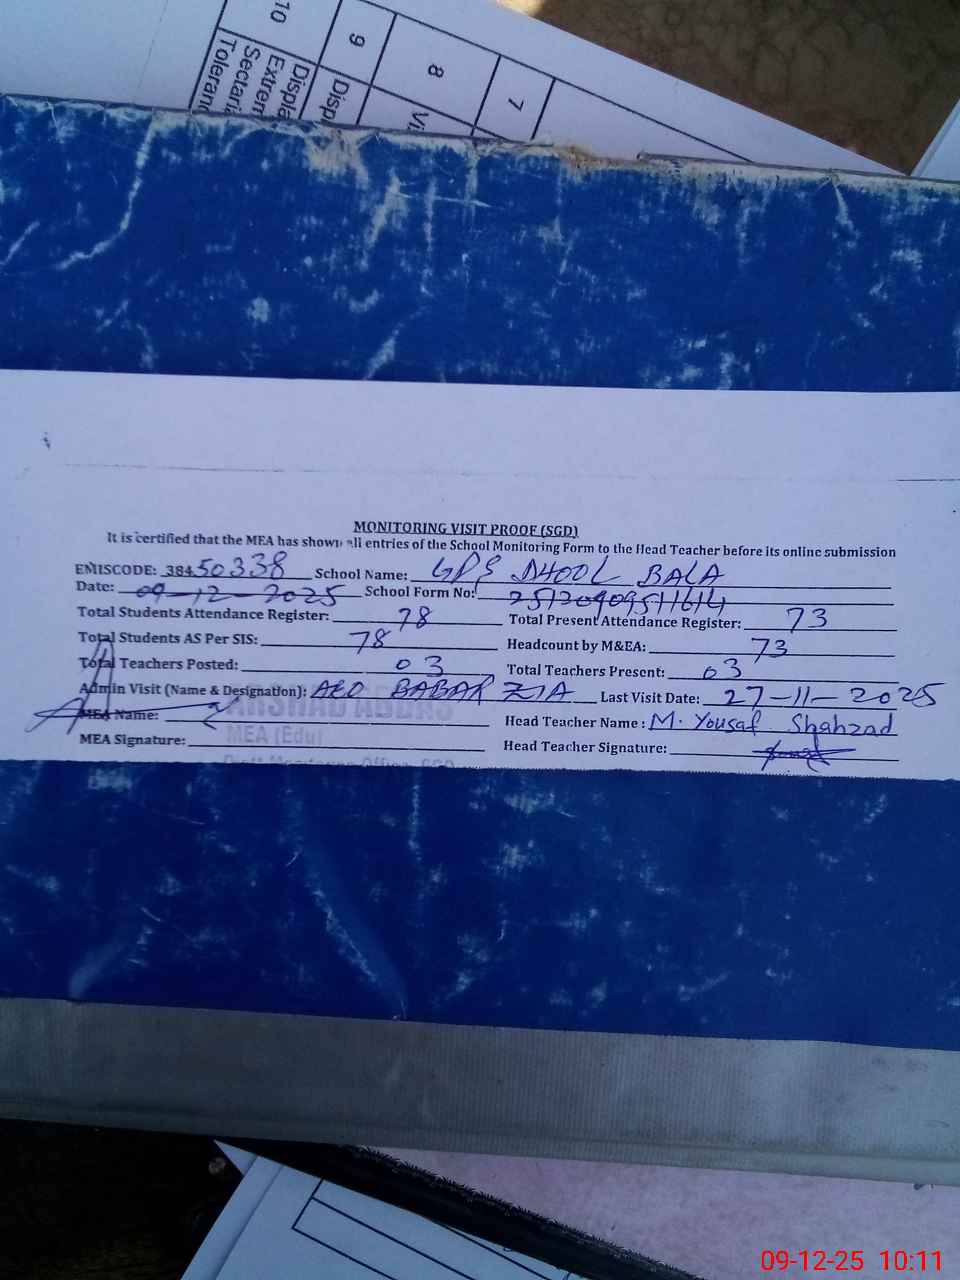 10
9
8
7
Displa
Extrem
Sectari
Toleranc
Disp
Vi
MONITORING VISIT PROOF (SGD)
It is certified that the MEA has shown all entries of the School Monitoring Form to the Head Teacher before its online submission
EMISCODE: 38450338 School Name: GPS DHOOL BALA
Date: 09-12-2025 School Form No: 25120909511614
Total Students Attendance Register: 78 Total Present Attendance Register: 73
Total Students AS Per SIS: 78 Headcount by M&EA: 73
Total Teachers Posted: 03 Total Teachers Present: 03
Admin Visit (Name & Designation): AEO BABAR ZIA Last Visit Date: 27-11-2025
MEA Name: ARSHAD ABBAS Head Teacher Name: M. Yousaf Shahzad
MEA (Edu)
MEA Signature: Head Teacher Signature:
09-12-25 10:11